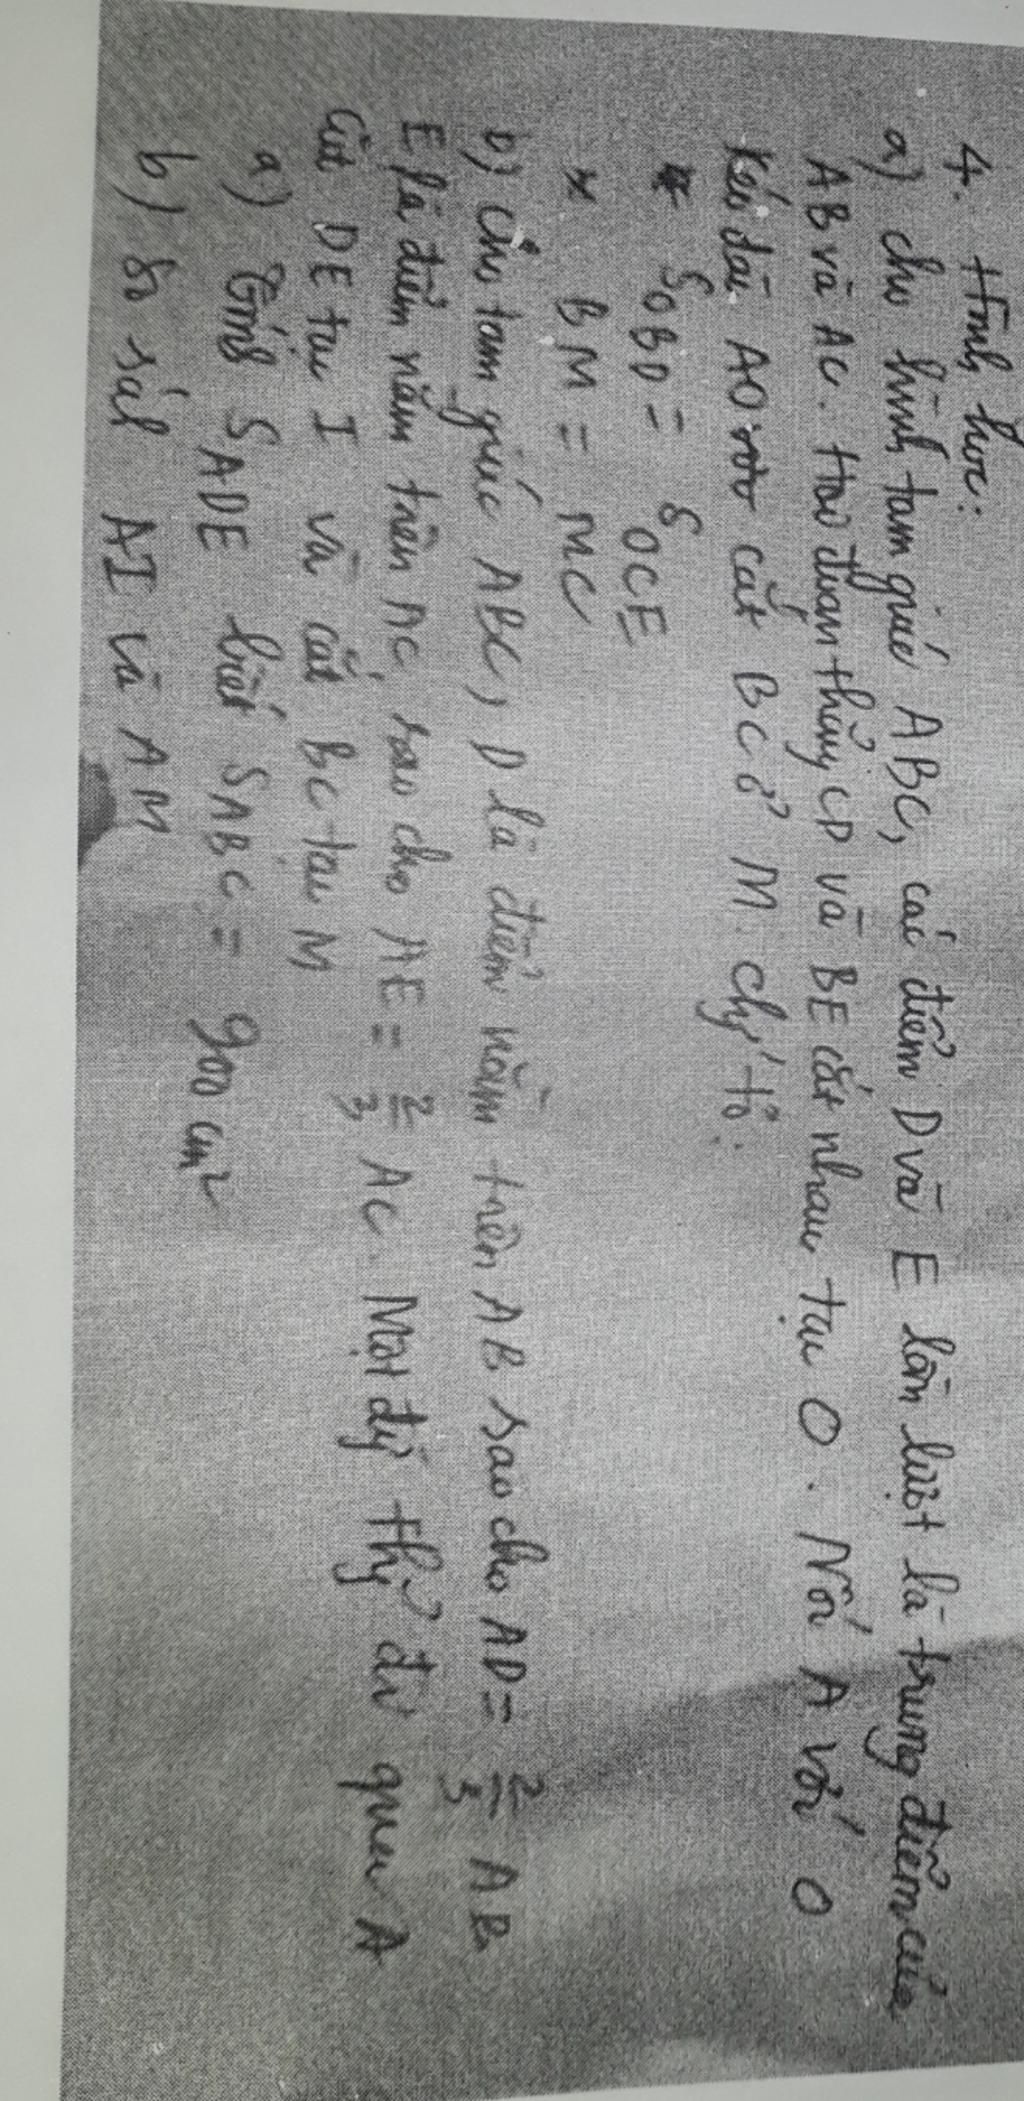 4. Hình học:
a) cho hình tam giác ABC, các điểm D và E lần lượt là trung điểm của
AB và AC. Hai đoạn thẳng CD và BE cắt nhau tại O. Nối A với O
Kéo dài AO cắt BC ở M. chứng tỏ:
* S OBD = S OCE
* BM = MC
b) cho tam giác ABC, D là điểm nằm trên AB sao cho AD = 2/3 AB,
E là điểm nằm trên AC sao cho AE = 2/3 AC. Một đg thẳng đi qua A
Cắt DE tại I và cắt BC tại M
a) Tính S ADE biết S ABC = 900 cm²
b) So sánh AI và AM